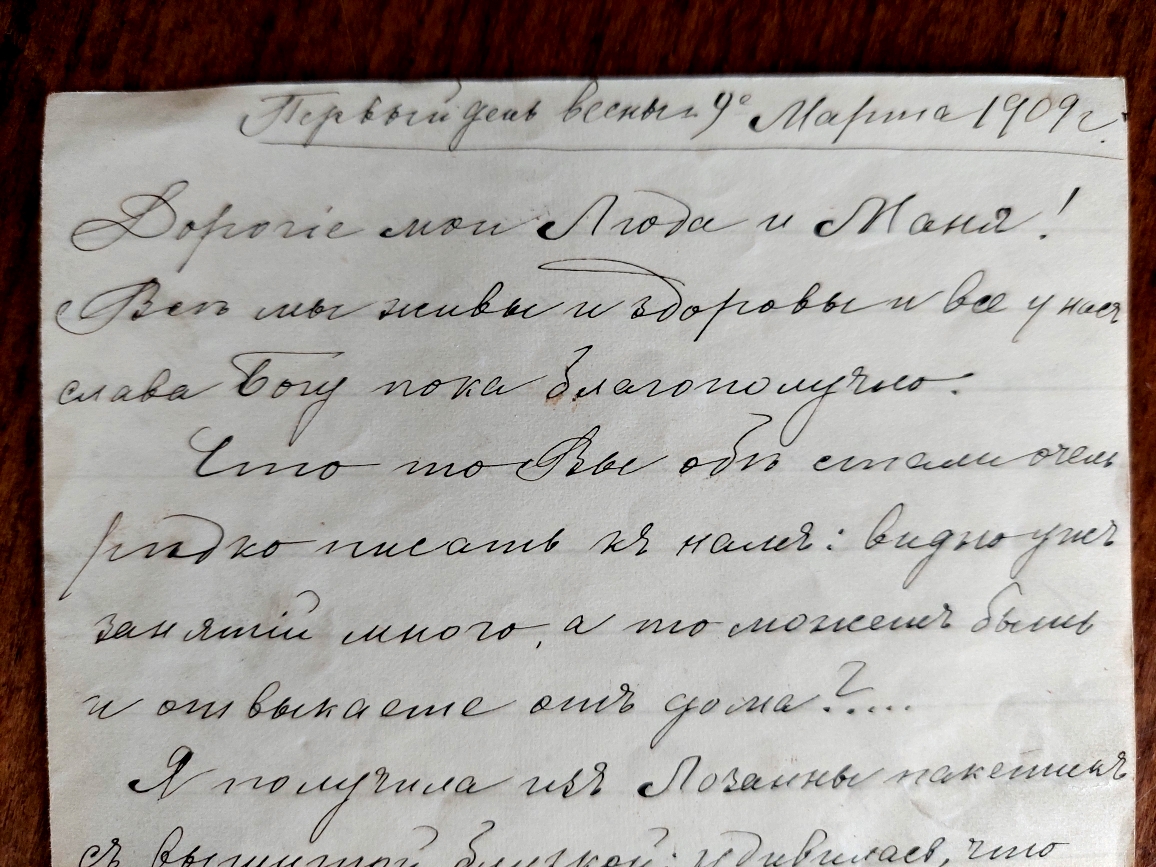 Первый день весны 9е Марта 1909 г.
Дорогіе мои Люда и Маня!
Всѣ мы живы и здоровы и все у насъ
слава Богу пока благополучно.
Что то Вы обѣ стали очень
рѣдко писать къ намъ: видно ужъ
занятій много, а то можетъ быть
и отвыкаете отъ дома?....
Я получила изъ Лозанны пакетикъ
съ вышитой блузкой; удивилась, что